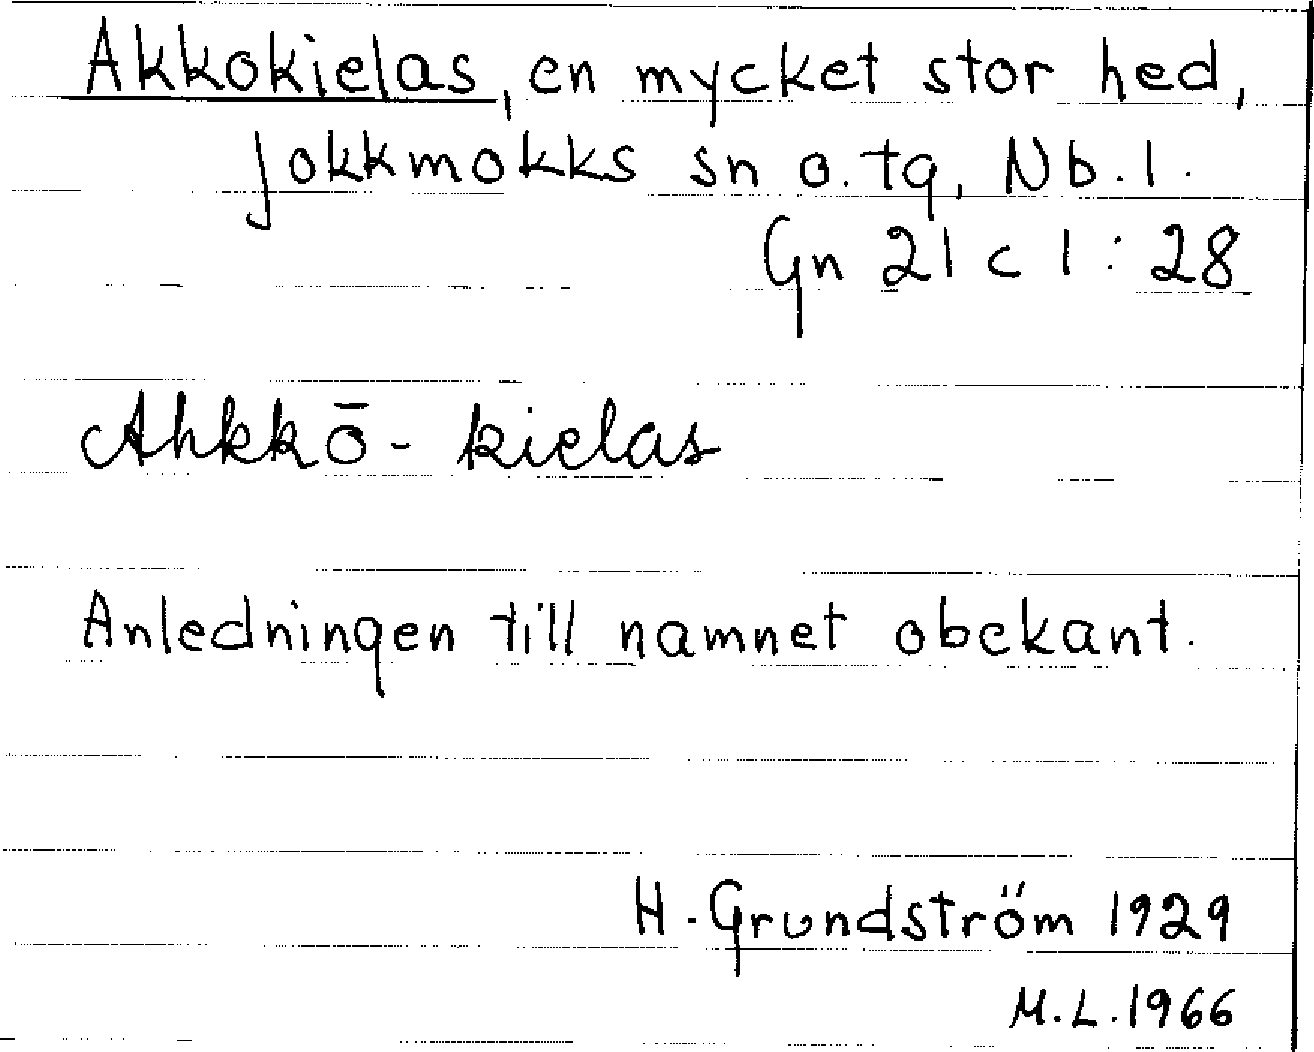 Akkokielas, en mycket stor hed,
Jokkmokks sn o. tg, Nb. l.
Gn 21 c 1:28
Ahkkō-kielas
Anledningen till namnet obekant.
H. Grundström 1929
M.L. 1966